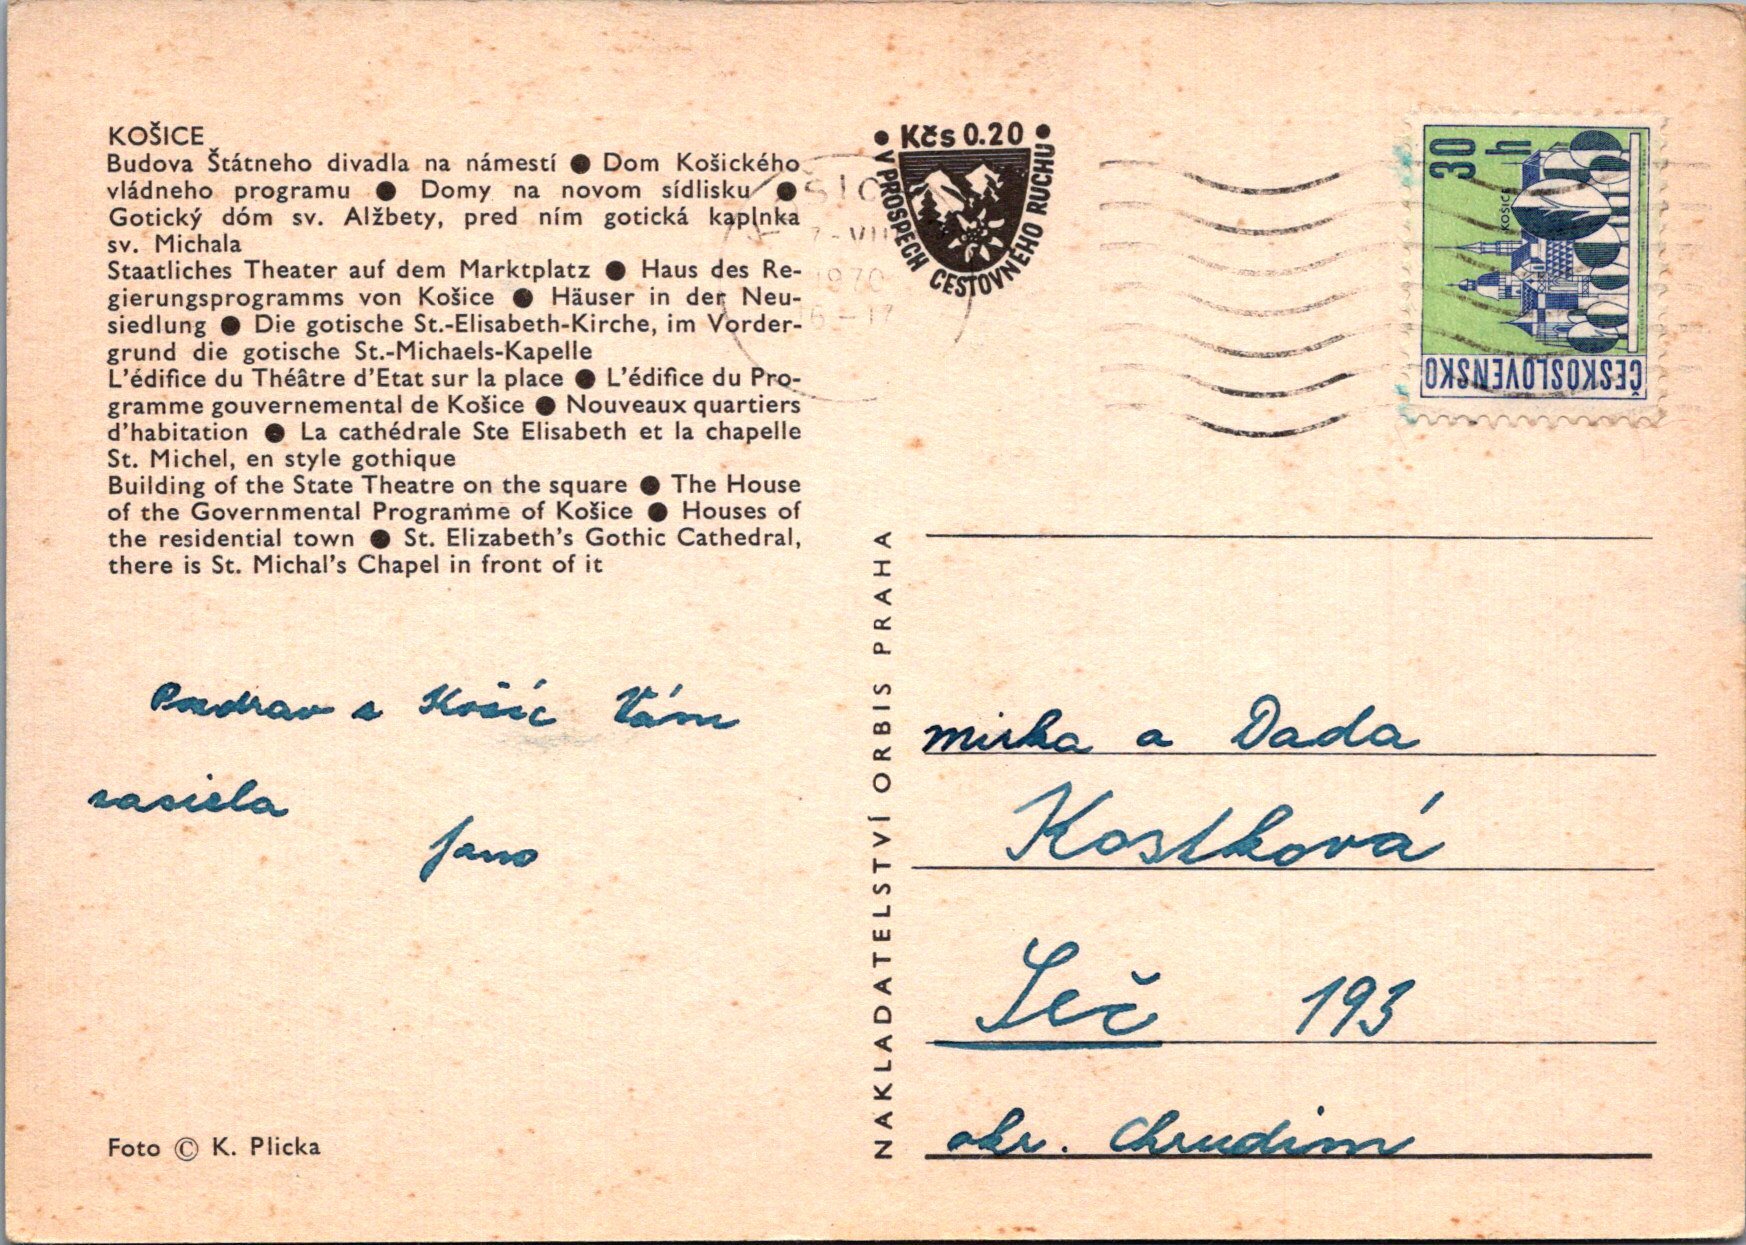 KOŠICE
Budova Štátneho divadla na námestí ● Dom Košického
vládneho programu ● Domy na novom sídlisku ●
Gotický dóm sv. Alžbety, pred ním gotická kaplnka
sv. Michala
Staatliches Theater auf dem Marktplatz ● Haus des Re-
gierungsprogramms von Košice ● Häuser in der Neu-
siedlung ● Die gotische St.-Elisabeth-Kirche, im Vorder-
grund die gotische St.-Michaels-Kapelle
L'édifice du Théâtre d'Etat sur la place ● L'édifice du Pro-
gramme gouvernemental de Košice ● Nouveaux quartiers
d'habitation ● La cathédrale Ste Elisabeth et la chapelle
St. Michel, en style gothique
Building of the State Theatre on the square ● The House
of the Governmental Programme of Košice ● Houses of
the residential town ● St. Elizabeth's Gothic Cathedral,
there is St. Michal's Chapel in front of it
Pozdrav z Košíc Vám
zasiela
Jano
Foto © K. Plicka
NAKLADATELSTVÍ ORBIS PRAHA
● Kčs 0.20 ●
V PROSPĚCH CESTOVNÉHO RUCHU
7-VII
1970
16-17
30 h
KOŠICE
ČESKOSLOVENSKO
Mirka a Dada
Kostková
Seč 193
okr. Chrudim